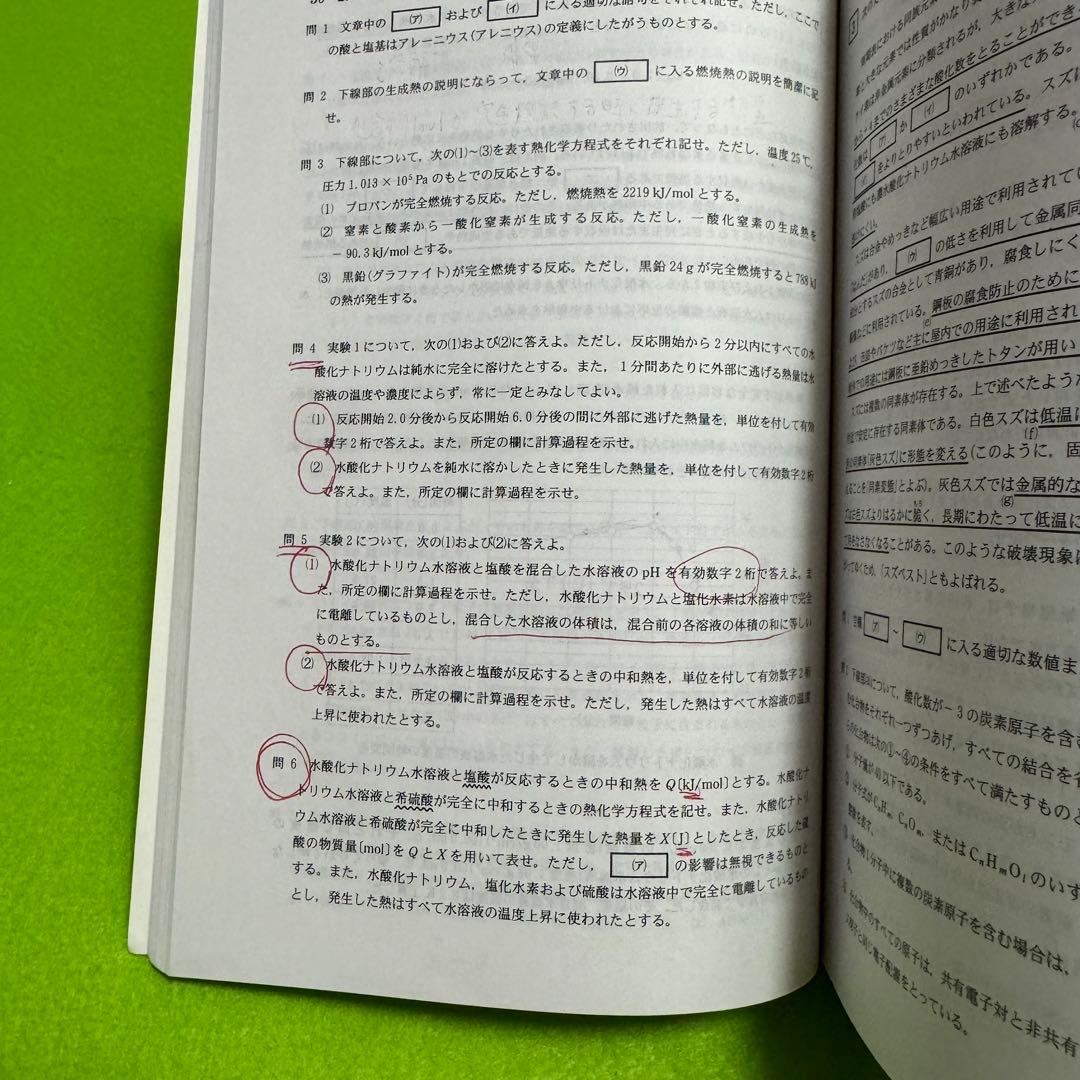 問 1 文章中の (ア) および (イ) に入る適切な語句をそれぞれ記せ。ただし，ここで
の酸と塩基はアレーニウス(アレニウス)の定義にしたがうものとする。
問 2 下線部の生成熱の説明にならって，文章中の (ウ) に入る燃焼熱の説明を簡潔に記
せ。
問 3 下線部について，次の(1)~(3)を表す熱化学方程式をそれぞれ記せ。ただし，温度25℃，
圧力 1.013 × 10⁵ Pa のもとでの反応とする。
(1) プロパンが完全燃焼する反応。ただし，燃焼熱を 2219 kJ/mol とする。
(2) 窒素と酸素から一酸化窒素が生成する反応。ただし，一酸化窒素の生成熱を
− 90.3 kJ/mol とする。
(3) 黒鉛(グラファイト)が完全燃焼する反応。ただし，黒鉛 24 g が完全燃焼すると 788 kJ
の熱が発生する。
問 4 実験 1 について，次の(1)および(2)に答えよ。ただし，反応開始から 2 分以内にすべての水
酸化ナトリウムは純水に完全に溶けたとする。また，1 分間あたりに外部に逃げる熱量は水
溶液の温度や濃度によらず，常に一定とみなしてよい。
(1) 反応開始 2.0 分後から反応開始 6.0 分後の間に外部に逃げた熱量を，単位を付して有効
数字 2 桁で答えよ。また，所定の欄に計算過程を示せ。
(2) 水酸化ナトリウムを純水に溶かしたときに発生した熱量を，単位を付して有効数字 2 桁
で答えよ。また，所定の欄に計算過程を示せ。
問 5 実験 2 について，次の(1)および(2)に答えよ。
(1) 水酸化ナトリウム水溶液と塩酸を混合した水溶液の pH を有効数字 2 桁で答えよ。ま
た，所定の欄に計算過程を示せ。ただし，水酸化ナトリウムと塩化水素は水溶液中で完全
に電離しているものとし，混合した水溶液の体積は，混合前の各溶液の体積の和に等しい
ものとする。
(2) 水酸化ナトリウム水溶液と塩酸が反応するときの中和熱を，単位を付して有効数字 2 桁
で答えよ。また，所定の欄に計算過程を示せ。ただし，発生した熱はすべて水溶液の温度
上昇に使われたとする。
問 6 水酸化ナトリウム水溶液と塩酸が反応するときの中和熱を Q〔kJ/mol〕とする。水酸化ナ
トリウム水溶液と希硫酸が完全に中和するときの熱化学方程式を記せ。また，水酸化ナトリ
ウム水溶液と希硫酸が完全に中和したときに発生した熱量を X〔J〕としたとき，反応した硫
酸の物質量〔mol〕を Q と X を用いて表せ。ただし， (ア) の影響は無視できるものと
する。また，水酸化ナトリウム，塩化水素および硫酸は水溶液中で完全に電離しているもの
とし，発生した熱はすべて水溶液の温度上昇に使われたとする。
大きな元素では性質がかなり
元素に分類されるが，大きな
までのさまざまな酸化数をとることができ
(ア) か (イ) のいずれかである。
をよりとりやすいといわれている。スズ
水酸化ナトリウム水溶液にも溶解する。
スズは合金やめっきなど幅広い用途で利用されてい
があり， (ウ) の低さを利用して金属同
スズの合金として青銅があり，腐食しにく
に利用されている。鋼板の腐食防止のために
(e)
バケツなど主に屋内での用途に利用され
用途には鋼板に亜鉛めっきしたトタンが用い
スズには複数の同素体が存在する。上で述べたような
安定に存在する同素体である。白色スズは低温に
(f)
「灰色スズ」に形態を変える(このように，固
ことを「同素変態」とよぶ)。灰色スズでは金属的な
(g)
は白色スズよりはるかに脆く，長期にわたって低温に
なることがある。このような破壊現象は
ため，「スズペスト」ともよばれる。
問 1 空欄 (ア) ~ (ウ) に入る適切な数値ま
について，酸化数が − 3 の炭素原子を含む
化合物をそれぞれ一つずつあげ，すべての結合を
化合物は次の①～④の条件をすべて満たすものと
① 分子量が 40 以下である。
② 分子式が CₙHₘ，CₙOₘ，または CₙHₘOₗ のいず
整数を表す。
③ 化合物 1 分子中に複数の炭素原子を含む場合は，
④ 化合物中のすべての原子は，共有電子対と非共有
原子と同じ電子配置をとっている。